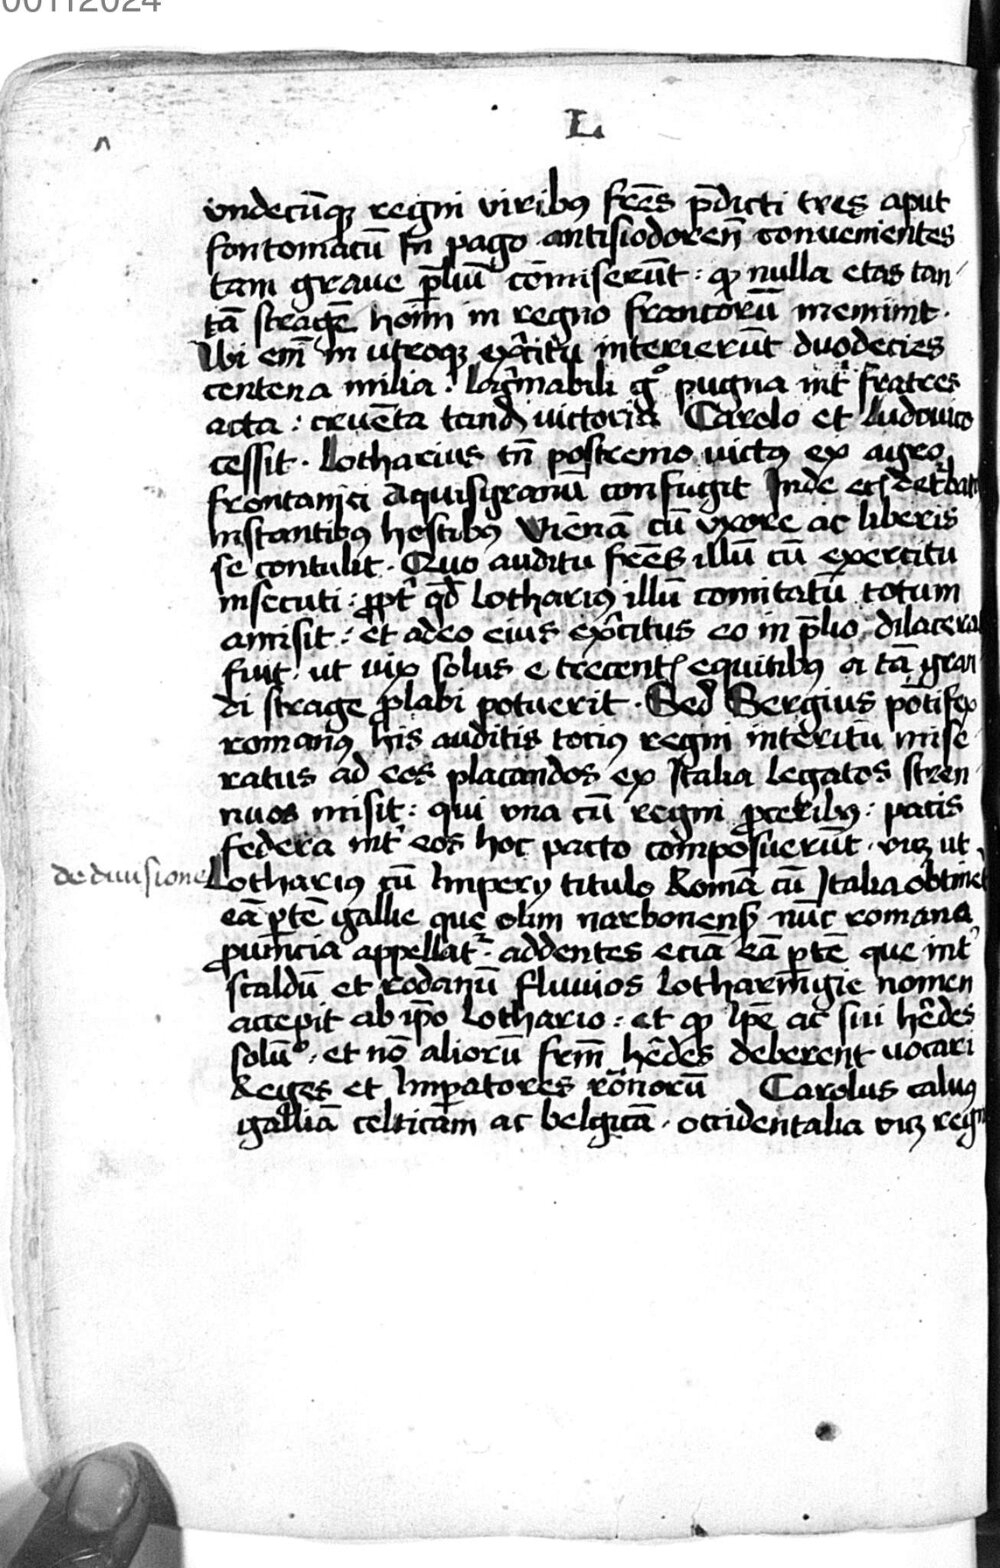 00112024
L
vndecūqȝ regni viribꝰ fr̄es p̄dicti tres aput
fontomacū In pago antisiodoreñ conuenientes
tam graue p̄liū cōmiserūt : qꝫ nulla etas tan
tā stragē hoīm in regno francorū meminit .
Vbi em̄ in utroqȝ ex̄citu interierūt duodecies
centena milia . lac̄mabili gͦ pugna int̄ fratres
acta : cruēta tand̄ victoria Carolo et Ludouico
cessit . Lotharius tn̄ postremo victꝰ ex agro
frontanici Aquisgranū confugit Inde
Instantibꝰ hostibꝰ viēnā cū vxore ac liberis
se contulit . Quo auditu fr̄es illū cū exercitu
insecuti : ꝓpt̄ qd̄ Lothariꝰ illū comitatū totum
amisit : et adeo eius ex̄citus eo in p̄lio dilacera
fuit ut vix solus e trecentꝭ equitibꝰ a tā gran
di strage ꝓlabi potuerit . Sed Sergius pōtifex
romanꝰ his auditis totiꝰ regni interitū mise
ratus ad eos placandos ex Italia legatos stren
nuos misit : qui vna cū regni ꝓceribꝰ : pacis
federa int̄ eos hoc pacto composuerūt . viȝ ut
de diuisione
Lothariꝰ cū Impery titulo Romā cū Italia obtinet
eā ꝑtē gallie que olim narbonensꝭ nūc romana
ꝓuīncia appellat᷑ . addentes eciā eā ꝑtē que int̄
scaldū et rodanū fluuios Lotharīngie nomen
accepit ab ip̄o Lothario : et qꝫ Ip̄e ac sui h̄edes
solū . et nō aliorū fr̄m h̄edes deberent vocari
Reges et Imꝑatores rōnorū Carolus caluꝰ
galliā celticam ac belgicā . occidentalia viȝ regn